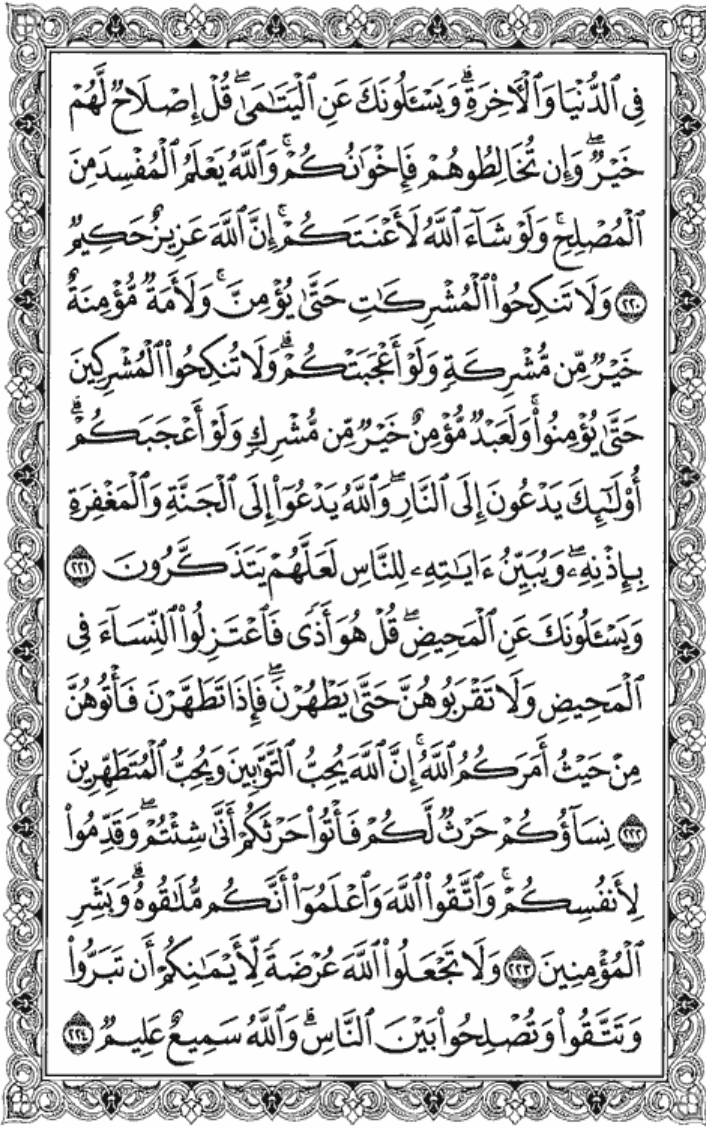 فِى ٱلدُّنْيَا وَٱلْـَٔاخِرَةِ ۗ وَيَسْـَٔلُونَكَ عَنِ ٱلْيَتَـٰمَىٰ ۖ قُلْ إِصْلَاحٌ لَّهُمْ
خَيْرٌ ۖ وَإِن تُخَالِطُوهُمْ فَإِخْوَٰنُكُمْ ۚ وَٱللَّهُ يَعْلَمُ ٱلْمُفْسِدَ مِنَ
ٱلْمُصْلِحِ ۚ وَلَوْ شَآءَ ٱللَّهُ لَأَعْنَتَكُمْ ۚ إِنَّ ٱللَّهَ عَزِيزٌ حَكِيمٌ
٢٢٠ وَلَا تَنكِحُوا۟ ٱلْمُشْرِكَـٰتِ حَتَّىٰ يُؤْمِنَّ ۚ وَلَأَمَةٌ مُّؤْمِنَةٌ
خَيْرٌ مِّن مُّشْرِكَةٍ وَلَوْ أَعْجَبَتْكُمْ ۗ وَلَا تُنكِحُوا۟ ٱلْمُشْرِكِينَ
حَتَّىٰ يُؤْمِنُوا۟ ۚ وَلَعَبْدٌ مُّؤْمِنٌ خَيْرٌ مِّن مُّشْرِكٍ وَلَوْ أَعْجَبَكُمْ ۗ
أُو۟لَـٰٓئِكَ يَدْعُونَ إِلَى ٱلنَّارِ ۖ وَٱللَّهُ يَدْعُوٓا۟ إِلَى ٱلْجَنَّةِ وَٱلْمَغْفِرَةِ
بِإِذْنِهِۦ ۖ وَيُبَيِّنُ ءَايَـٰتِهِۦ لِلنَّاسِ لَعَلَّهُمْ يَتَذَكَّرُونَ ٢٢١
وَيَسْـَٔلُونَكَ عَنِ ٱلْمَحِيضِ ۖ قُلْ هُوَ أَذًى فَٱعْتَزِلُوا۟ ٱلنِّسَآءَ فِى
ٱلْمَحِيضِ وَلَا تَقْرَبُوهُنَّ حَتَّىٰ يَطْهُرْنَ ۖ فَإِذَا تَطَهَّرْنَ فَأْتُوهُنَّ
مِنْ حَيْثُ أَمَرَكُمُ ٱللَّهُ ۚ إِنَّ ٱللَّهَ يُحِبُّ ٱلتَّوَّٰبِينَ وَيُحِبُّ ٱلْمُتَطَهِّرِينَ
٢٢٢ نِسَآؤُكُمْ حَرْثٌ لَّكُمْ فَأْتُوا۟ حَرْثَكُمْ أَنَّىٰ شِئْتُمْ ۖ وَقَدِّمُوا۟
لِأَنفُسِكُمْ ۚ وَٱتَّقُوا۟ ٱللَّهَ وَٱعْلَمُوٓا۟ أَنَّكُم مُّلَـٰقُوهُ ۗ وَبَشِّرِ
ٱلْمُؤْمِنِينَ ٢٢٣ وَلَا تَجْعَلُوا۟ ٱللَّهَ عُرْضَةً لِّأَيْمَـٰنِكُمْ أَن تَبَرُّوا۟
وَتَتَّقُوا۟ وَتُصْلِحُوا۟ بَيْنَ ٱلنَّاسِ ۗ وَٱللَّهُ سَمِيعٌ عَلِيمٌ ٢٢٤